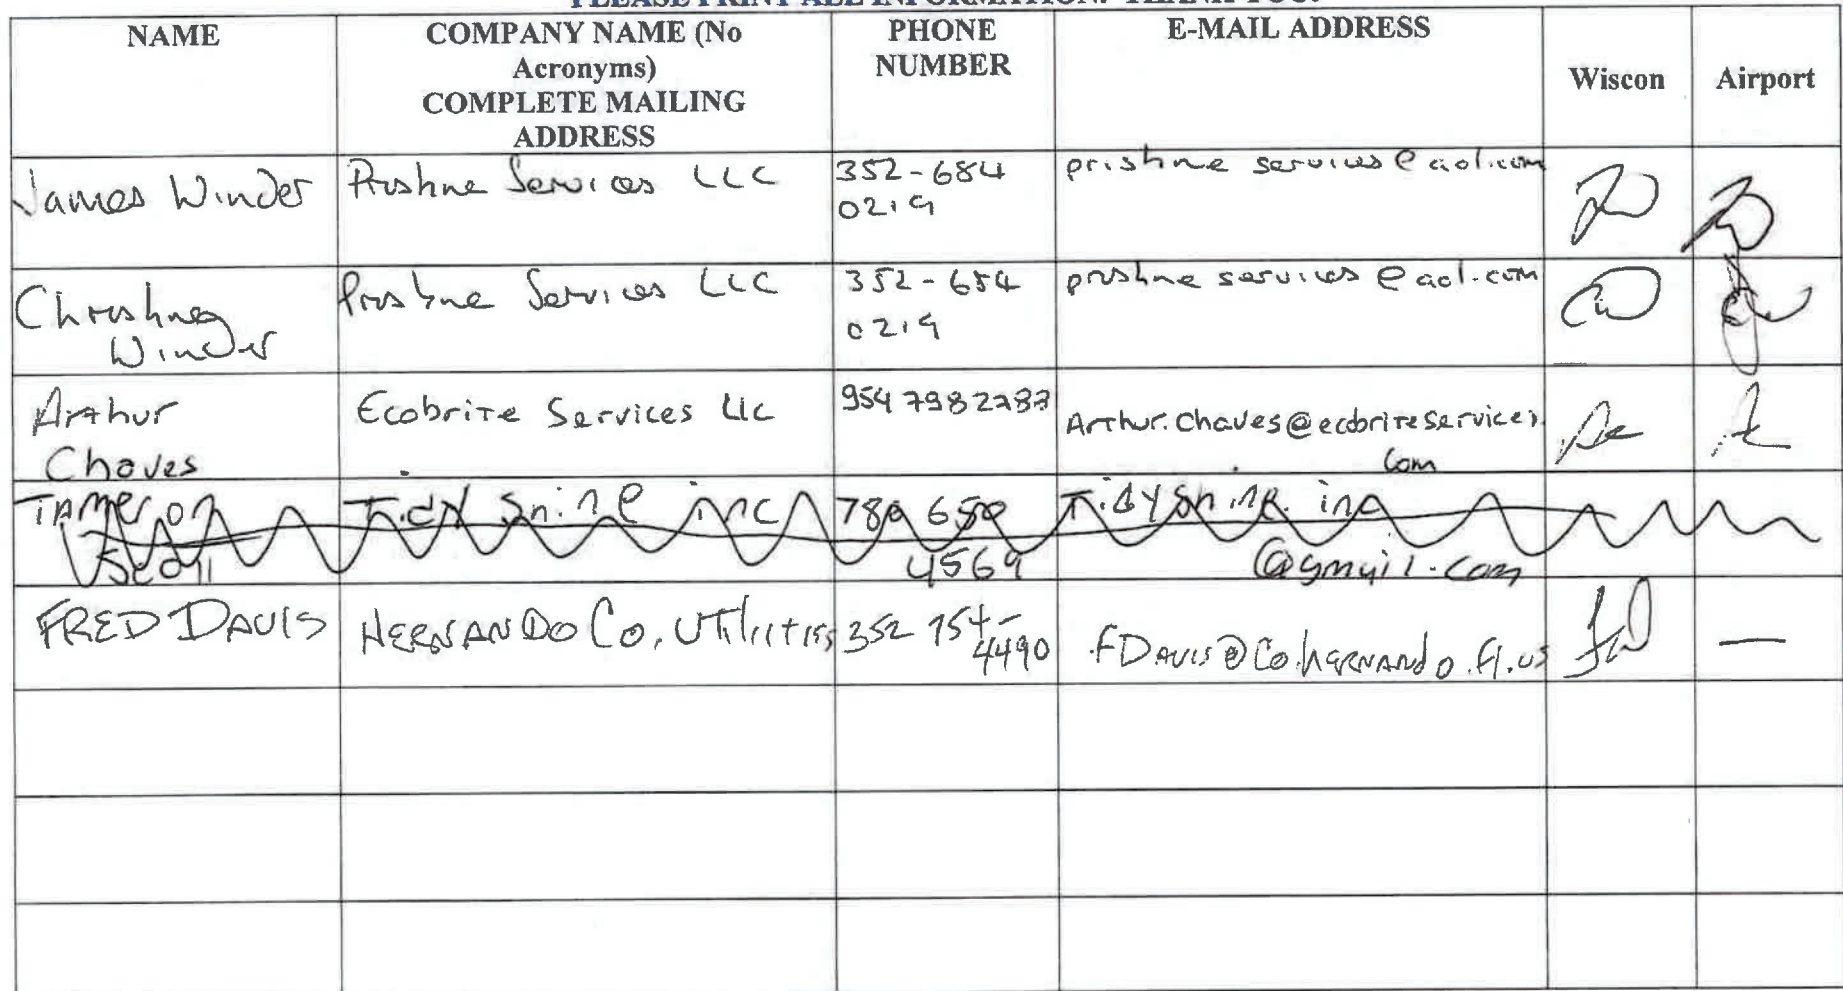 PLEASE PRINT ALL INFORMATION. THANK YOU.
NAME
COMPANY NAME (No
Acronyms)
COMPLETE MAILING
ADDRESS
PHONE
NUMBER
E-MAIL ADDRESS
Wiscon
Airport
James Winder
Pristine Services LLC
352-684
0219
pristine services@aol.com
Christine
Winder
Pristine Services LLC
352-684
0219
pristine services@aol.com
Arthur
Chaves
Ecobrite Services llc
954 798
Arthur.Chaves@ecobriteservices.
com
Tidy Shine inc
4569
Tidyshine.inc
@gmail.com
FRED DAVIS
HERNANDO Co. UTilities
352 754-
4490
FDavis@Co.hernando.fl.us
—